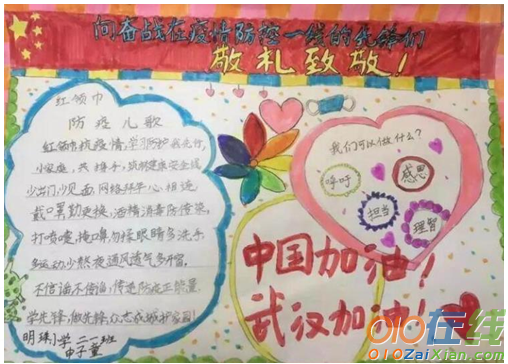 向奋战在疫情防控一线的先锋们
敬礼致敬！
红领巾
防疫儿歌
红领巾抗疫情，学习防护我先行，
小家庭，共携手，筑牢健康安全线
少出门少见面，网络好手心相连
戴口罩勤更换，酒精消毒防传染，
打喷嚏，掩口鼻，勿揉眼睛多洗手，
多运动少熬夜，通风透气多开窗，
不信谣不传谣，传递防疫正能量
学先锋，做先锋，众志成城护家园！
明珠小学二二班
我们可以做什么？
呼吁
感恩
担当
理智
中国加油！
武汉加油！
010在线
010ZaiXian.Com